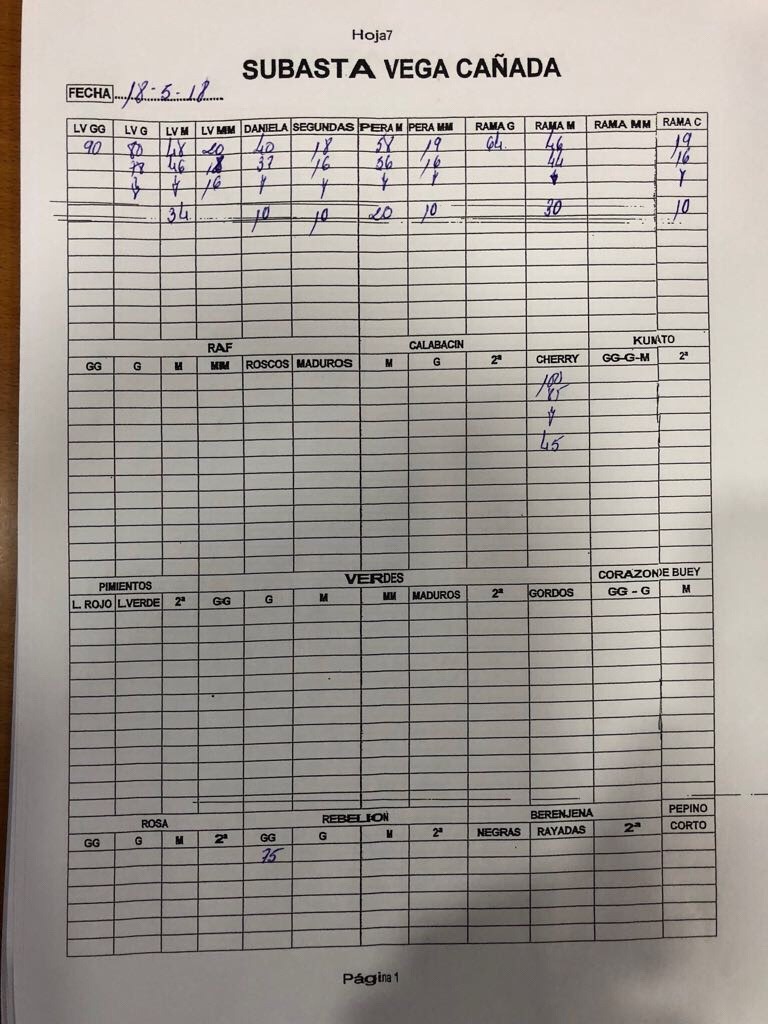 Hoja7
SUBASTA VEGA CAÑADA
FECHA 18-5-18
LV GG LV G LV M LV MM DANIELA SEGUNDAS PERA M PERA MM RAMA G RAMA M RAMA MM RAMA C
90 80 48 20 40 18 58 19 64 46 19
78 46 18 37 16 56 16 44 16
16
34 10 10 20 10 30 10
RAF CALABACIN KUMATO
GG G M MM ROSCOS MADUROS M G 2ª CHERRY GG-G-M 2ª
100
85
45
PIMIENTOS VERDES CORAZON DE BUEY
L. ROJO L.VERDE 2ª GG G M MM MADUROS 2ª GORDOS GG - G M
ROSA REBELION BERENJENA PEPINO
GG G M 2ª GG G M 2ª NEGRAS RAYADAS 2ª CORTO
75
Página 1